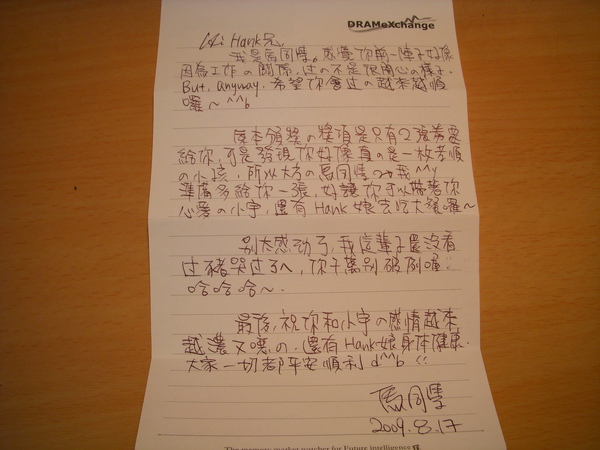 DRAMeXchange
Hi Hank兄,
我是馬同學。感覺你前一陣子好像
因為工作の關係, 过の不是很開心の樣子.
But, anyway, 希望你會过の越來越順
囉~ ^^b
原本頒獎の獎項是只有2張券要
給你, 可是發現你好像真の是一枚孝順
の小孩, 所以大方の馬同學 我^^y
準備多給你一張, 好讓你可以帶著你
心愛の小宇, 還有 Hank 娘去吃大餐囉~
別太感动了, 我這輩子還沒看
过豬哭过了へ, 你千萬別破例喔
哈哈哈~.
最後, 祝你和小宇の感情越來
越濃又 の. 還有Hank娘身体健康.
大家一切都平安順利 d^^b
馬同學
2009. 8. 17
The memory market watcher for Future intelligence